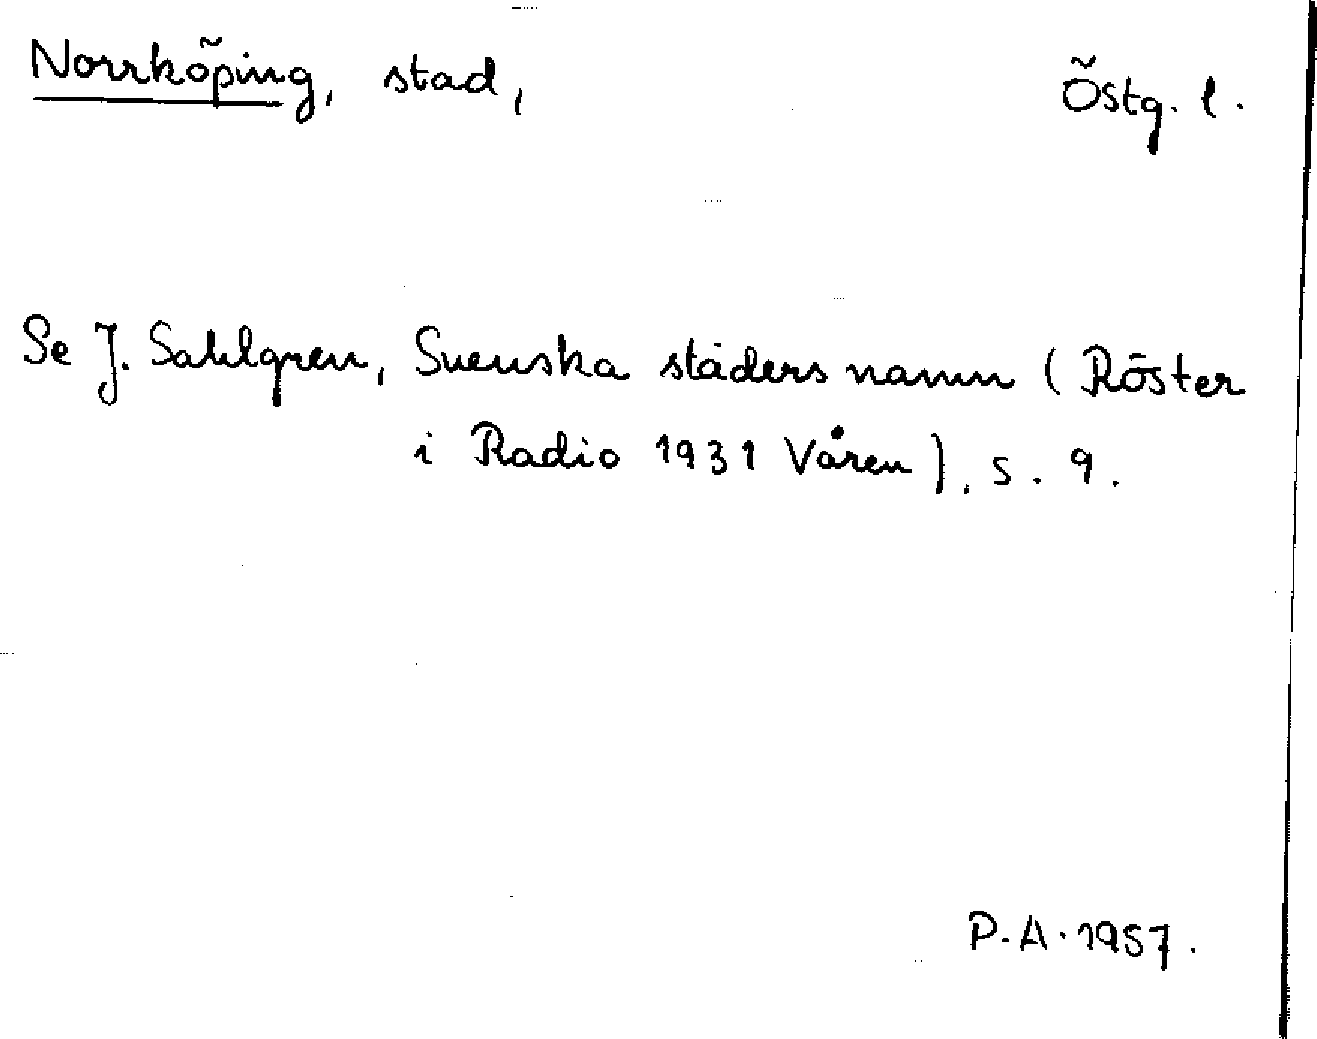 Norrköping, stad, Östg. l.
Se J. Sahlgren, Svenska städers namn (Röster
i Radio 1931 Våren), s. 9.
P.A. 1957.